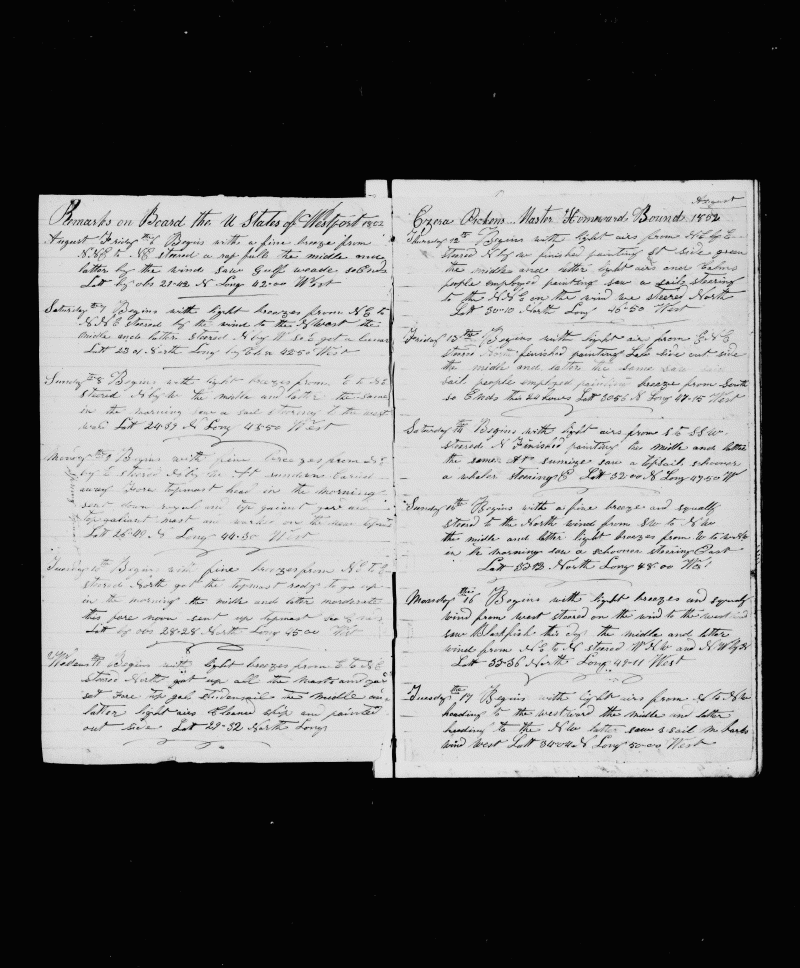 Remarks on Board the U States of Westport 1852
August Friday 6th Begins with a fine breeze from
NNE to NE steered a rap full the middle and
latter by the wind saw Gulf weade so Ends
Latt by obs 21-42 N Long 42-00 West
Saturday 7th Begins with light breezes from NE to
NNE steered by the wind to the NWest the
middle and latter steered N by W So E got a Lunar
Latt 23 01 North Long by Chr 42 50 West
Sunday 8 Begins with light breezes from E to NE
steered N by W the middle and latter the same
in the morning saw a sail steering to the west
ward Latt 24-57 N Long 43-50 West
Monday 9 Begins with fine breezes from NE
by E steered N by W At sundown carried
away Fore topmast head in the morning
sent down royal and top galant yard and
top galiant mast and worked on the new topmast
Latt 26-40 N Long 44-30 West
Tuesday 10th Begins with fine breezes from NE to E
steered North got the topmast ready to go up
in the morning the midle and latter moderate
this fore noon sent up topmast
Latt by obs 28-28 North Long 45 00 West
Wedens 11th Begins with light breezes from E to NE
steered North got up all the masts and yards
set Fore top gal studensail the middle and
latter light airs Cleaned ship and painted
out side Lat 29-32 North Long
August
Ezera Pickens Master Homeward Bound 1852
Thursday 12th Begins with light airs from NE by E
steered N by W finished painting St side green
the middle and latter light airs and Calms
people employed painting saw a sail steering
to the NNE on the wind we steered North
Latt 30-10 North Long 46-50 West
Friday 13th Begins with light air from ENE
steered North finished painting Lab side out side
the middle and latter the same saw
sail people employed painting breeze from South
so Ends this 24 hours Latt 3056 N Long 47-15 West
Saturday 14 Begins with light airs from S to SSW
steered N Finished painting the midle and latter
the same At sunrise saw a topsail schooner
a whaler steering E Latt 32 00 N Long 47-50 W
Sunday 15th Begins with a fine breeze and squally
steered to the North wind from SW to NW
the middle and latter light breezes from W to WNW
in the morning saw a schooner steering East
Latt 33 13 North Long 48 00 West
Monday 16 this Begins with light breezes and squally
wind from west steered on the wind to the westward
saw Blackfish this day the middle and latter
wind from NE to N steered WNW and NW by W
Latt 33-36 North Long 49-11 West
Tuesday 17th Begins with light airs from N to NW
heading to the westward the midle and latter
heading to the NW latter saw 3 sail m barks
wind west Latt 34 04 N Long 50-00 West